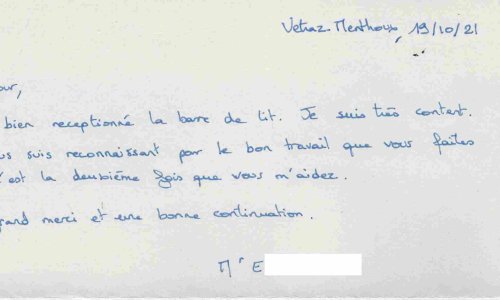 Vetraz-Monthoux, 19/10/21
our,
bien receptionné la barre de lit. Je suis très content.
us suis reconnaissant par le bon travail que vous faites
'est la deuxième fois que vous m'aidez.
grand merci et une bonne continuation.
Mr E